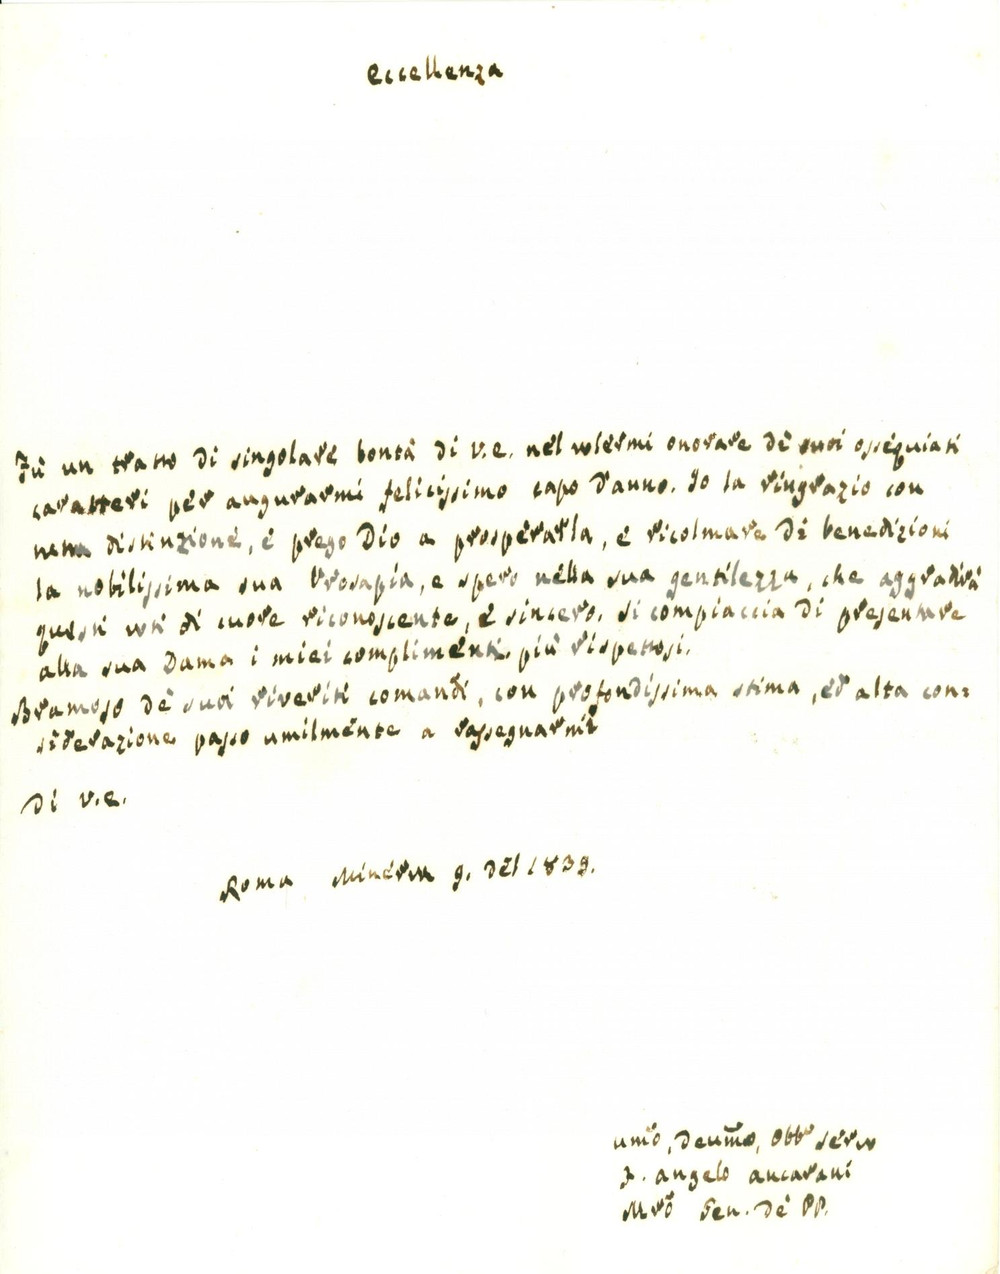 Eccellenza
Fù un tratto di singolare bontà di V.E. nel volermi onorare dè suoi ossequiati
caratteri per augurarmi felicissimo capo d'anno. Io la ringrazio con
distinzione, è prego Dio a prosperarla, è ricolmare di benedizioni
la nobilissima sua Prosapia, e spero nella sua gentilezza, che aggradirà
questi voti di cuore riconoscente, è sincero. Si compiaccia di presentare
alla sua Dama i miei complimenti più rispettosi.
Bramoso dè suoi riveriti comandi, con profondissima stima, ed alta con=
siderazione passo umilmente a rassegnarmi
Di V.E.
Roma Minerva 9. del 1839.
Umõ, Deumõ, Obbõ Serv
F. Angelo Ancarani
Mrõ Gen. dè PP.